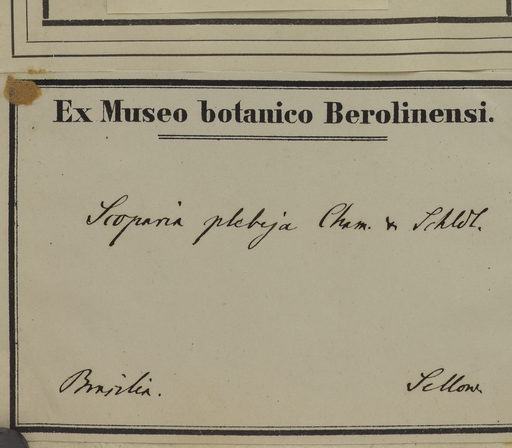 Ex Museo botanico Berolinensi.
Scoparia plebeja Cham. & Schldl.
Brasilia.
Sellow